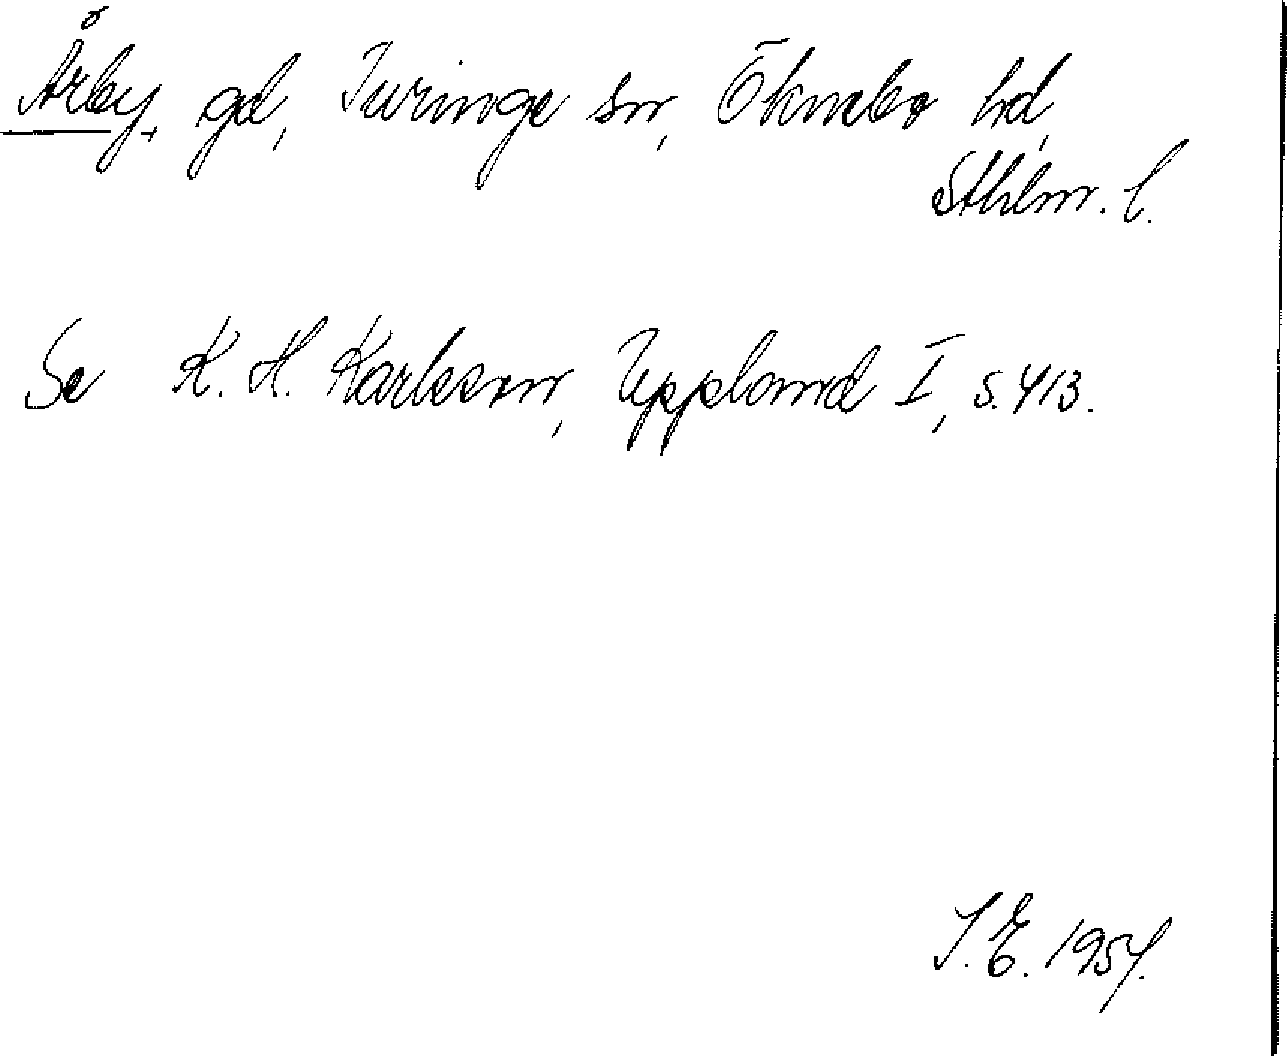 Årby, gd, Turinge sn, Öknebo hd,
Sthlm. l.
Se K. H. Karlsson, Uppland I, s. 413.
S. E. 1954.